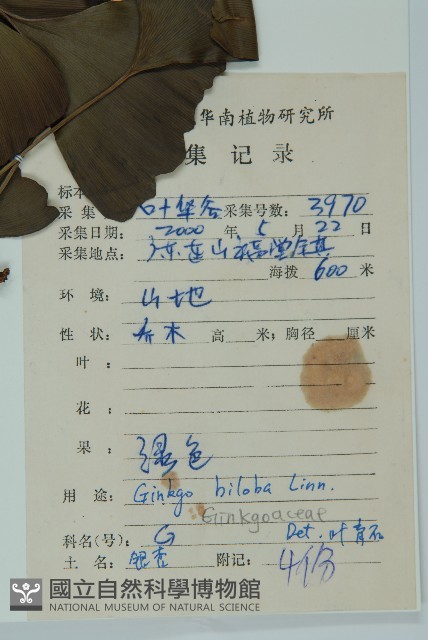 华南植物研究所
集记录
标本
采集 叶华谷 采集号数: 3970
采集日期: 2000 年 5 月 22 日
采集地点: 连山
海拨 600 米
环境: 山地
性状: 乔木 高 米; 胸径 厘米
叶:
花:
果: 绿色
用途: Ginkgo biloba Linn.
Ginkgoaceae
科名(号): G Det. 叶育石
土名: 银杏 附记: 4份
國立自然科學博物館
NATIONAL MUSEUM OF NATURAL SCIENCE